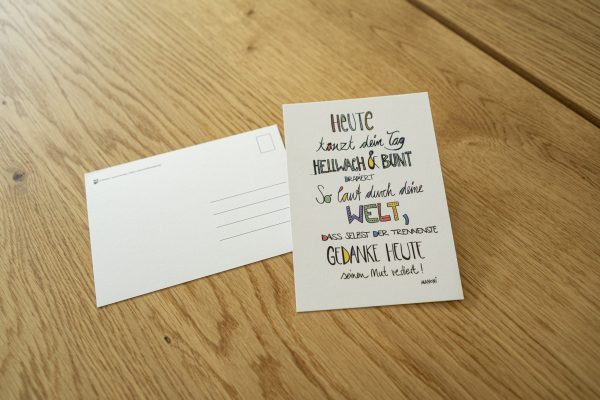 HEUTE
tanzt dein Tag
HELLWACH & BUNT
So laut durch deine
WELT,
DASS SELBST DER TRENNENSTE
GEDANKE HEUTE
seinen Mut verliert!